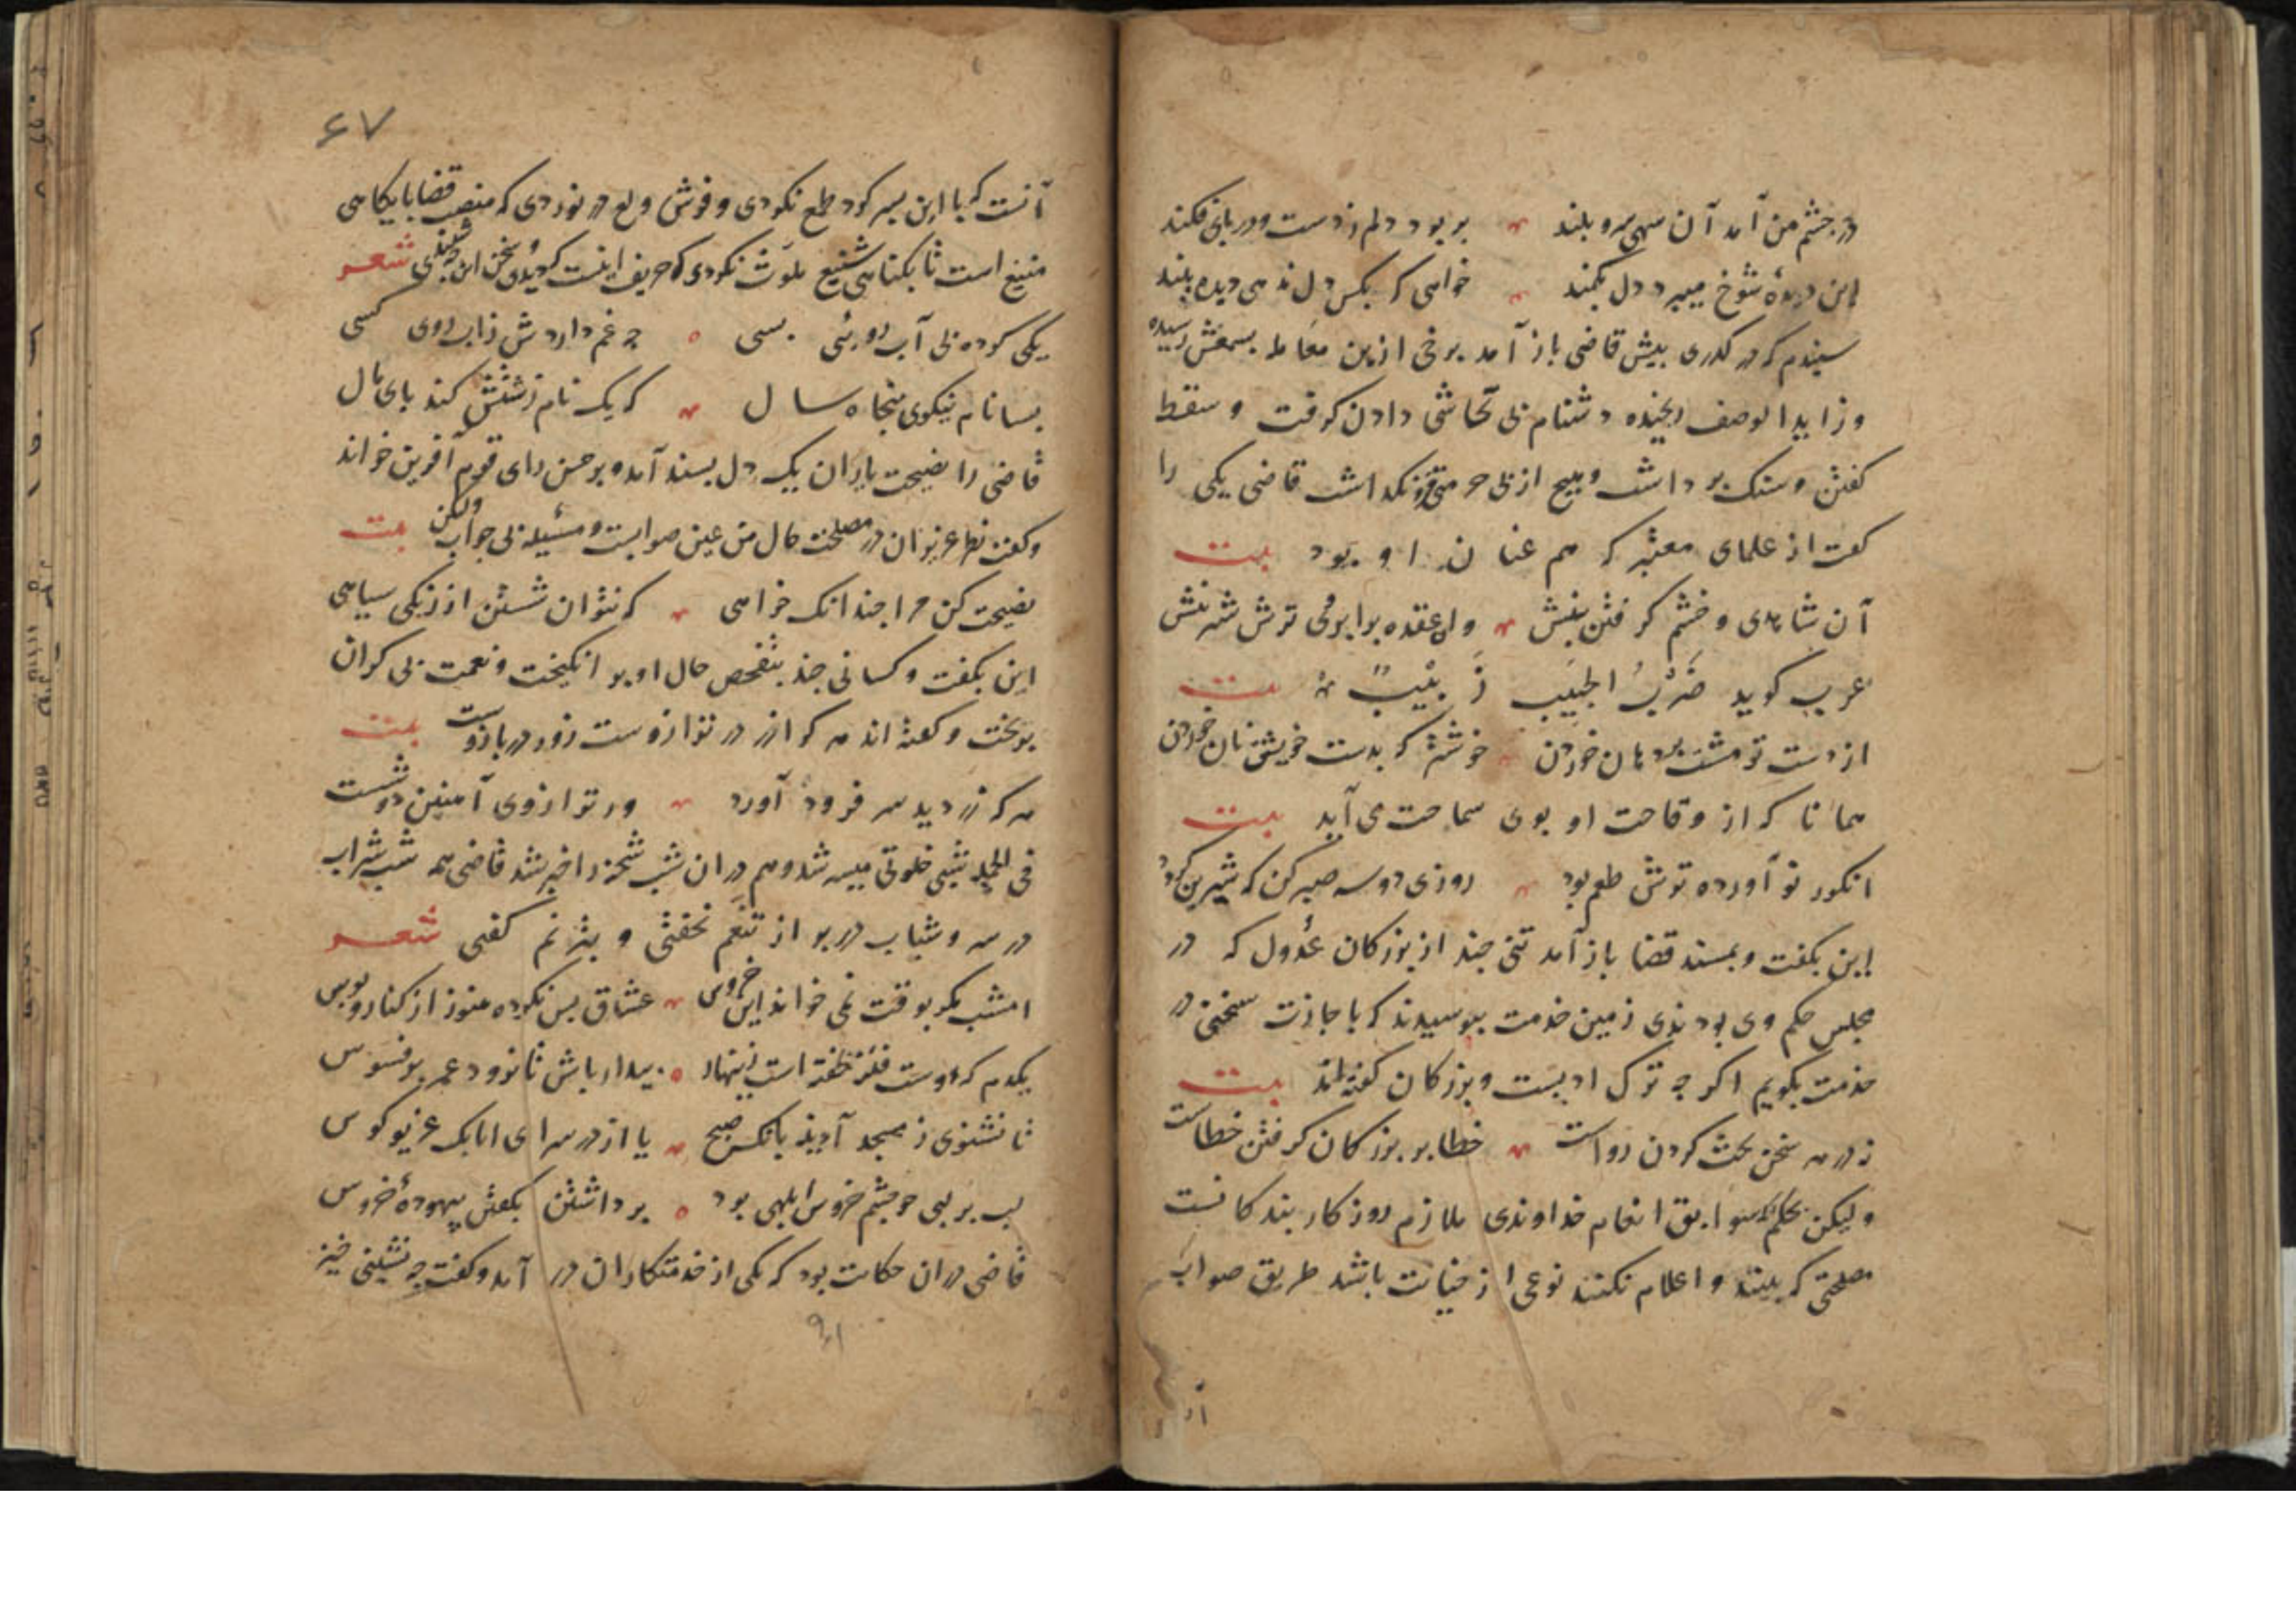 در چشم من آمد آن سهی سرو بلند بربود دلم ز دست و در پای فکند
این دیدهٔ شوخ میبرد دل بکمند خواهی که بکس دل ندهی دیده ببند
شنیدم که در کذری پیش قاضی باز آمد برخی ازین معامله بسمعش رسیده
و زاید الوصف رنجیده دشنام بی تحاشی دادن کرفت و سقط
کفتن و سنک برداشت و هیچ از بی حرمتی فرو نکذاشت قاضی یکی را
کفت از علمای معتبر که هم عنان او بود بیت
آن شاهدی و خشم کرفتن بینش وان عقده برابروی ترش شیرینش
عرب کوید ضَربُ الحَبیبِ زَبیبٌ بیت
از دست تو مشت بر دهان خوردن خوشتر که بدست خویش نان خوردن
همانا که از وقاحت او بوی سماحت می آید بیت
انکور نو آورده ترش طعم بود روزی دو سه صبر کن که شیرین کردد
این بکفت و بمسند قضا باز آمد تنی چند از بزرکان عدول که در
مجلس حکم وی بودندی زمین خدمت ببوسیدند که باجازت سخنی در
خدمت بکویم اکر چه ترک ادبست و بزرکان کفته اند بیت
نه در هر سخن بحث کردن رواست خطا بر بزرکان کرفتن خطاست
ولیکن بحکم آنکه سوابق انعام خداوندی ملازم روزکار بندکانست
مصلحتی که بینند و اعلام نکنند نوعی از خیانت باشد طریق صواب
آن
۶۷
آنست که با این پسر کرد طمع نکردی و فرش ولع در نوردی که منصب قضا پایکاهی
منیع است تا بکناهی شنیع ملوث نکردی که حریف اینست که دیدی و سخن این که شنیدی شعر
یکی کرده بی آب رویی بسی چه غم دارد ش زاب روی کسی
بسا نام نیکوی پنجاه سال که یک نام زشتش کند پای مال
قاضی را نصیحت یاران یک دل پسند آمد و بر حسن رای قوم آفرین خواند
و کفت نظر عزیزان در مصلحت حال من عین صوابست و مسئله بی جواب ولکن بیت
نصیحت کن مرا چندانک خواهی که نتوان شستن از زنکی سیاهی
این بکفت و کسانی چند بتفحص حال او بر انکیخت و نعمت بی کران
بریخت و کفته اند هر که را زر در ترازوست زور در بازوست بیت
هر که زر دید سر فرود آورد ور ترازوی آهنین دوشست
فی الجمله شبی خلوتی میسر شد و هم دران شب شحنه را خبر شد قاضی همه شب شراب
در سر و شباب در بر از تنعم نخفتی و بترنم کفتی شعر
امشب مکر بوقت نمی خواند این خروس عشاق بس نکرده هنوز از کنار و بوس
یکدم که دوست فتنه خفته است زینهار بیدار باش تا نرود عمر بر فسوس
تا نشنوی ز مسجد آدینه بانک صبح یا از در سرای اتابک غریو کوس
لب بر لبی چو چشم خروس ابلهی بود برداشتن بکفتن بیهودهٔ خروس
قاضی دران حکایت بود که یکی از خدمتکاران در آمد و کفت چه نشینی خیز